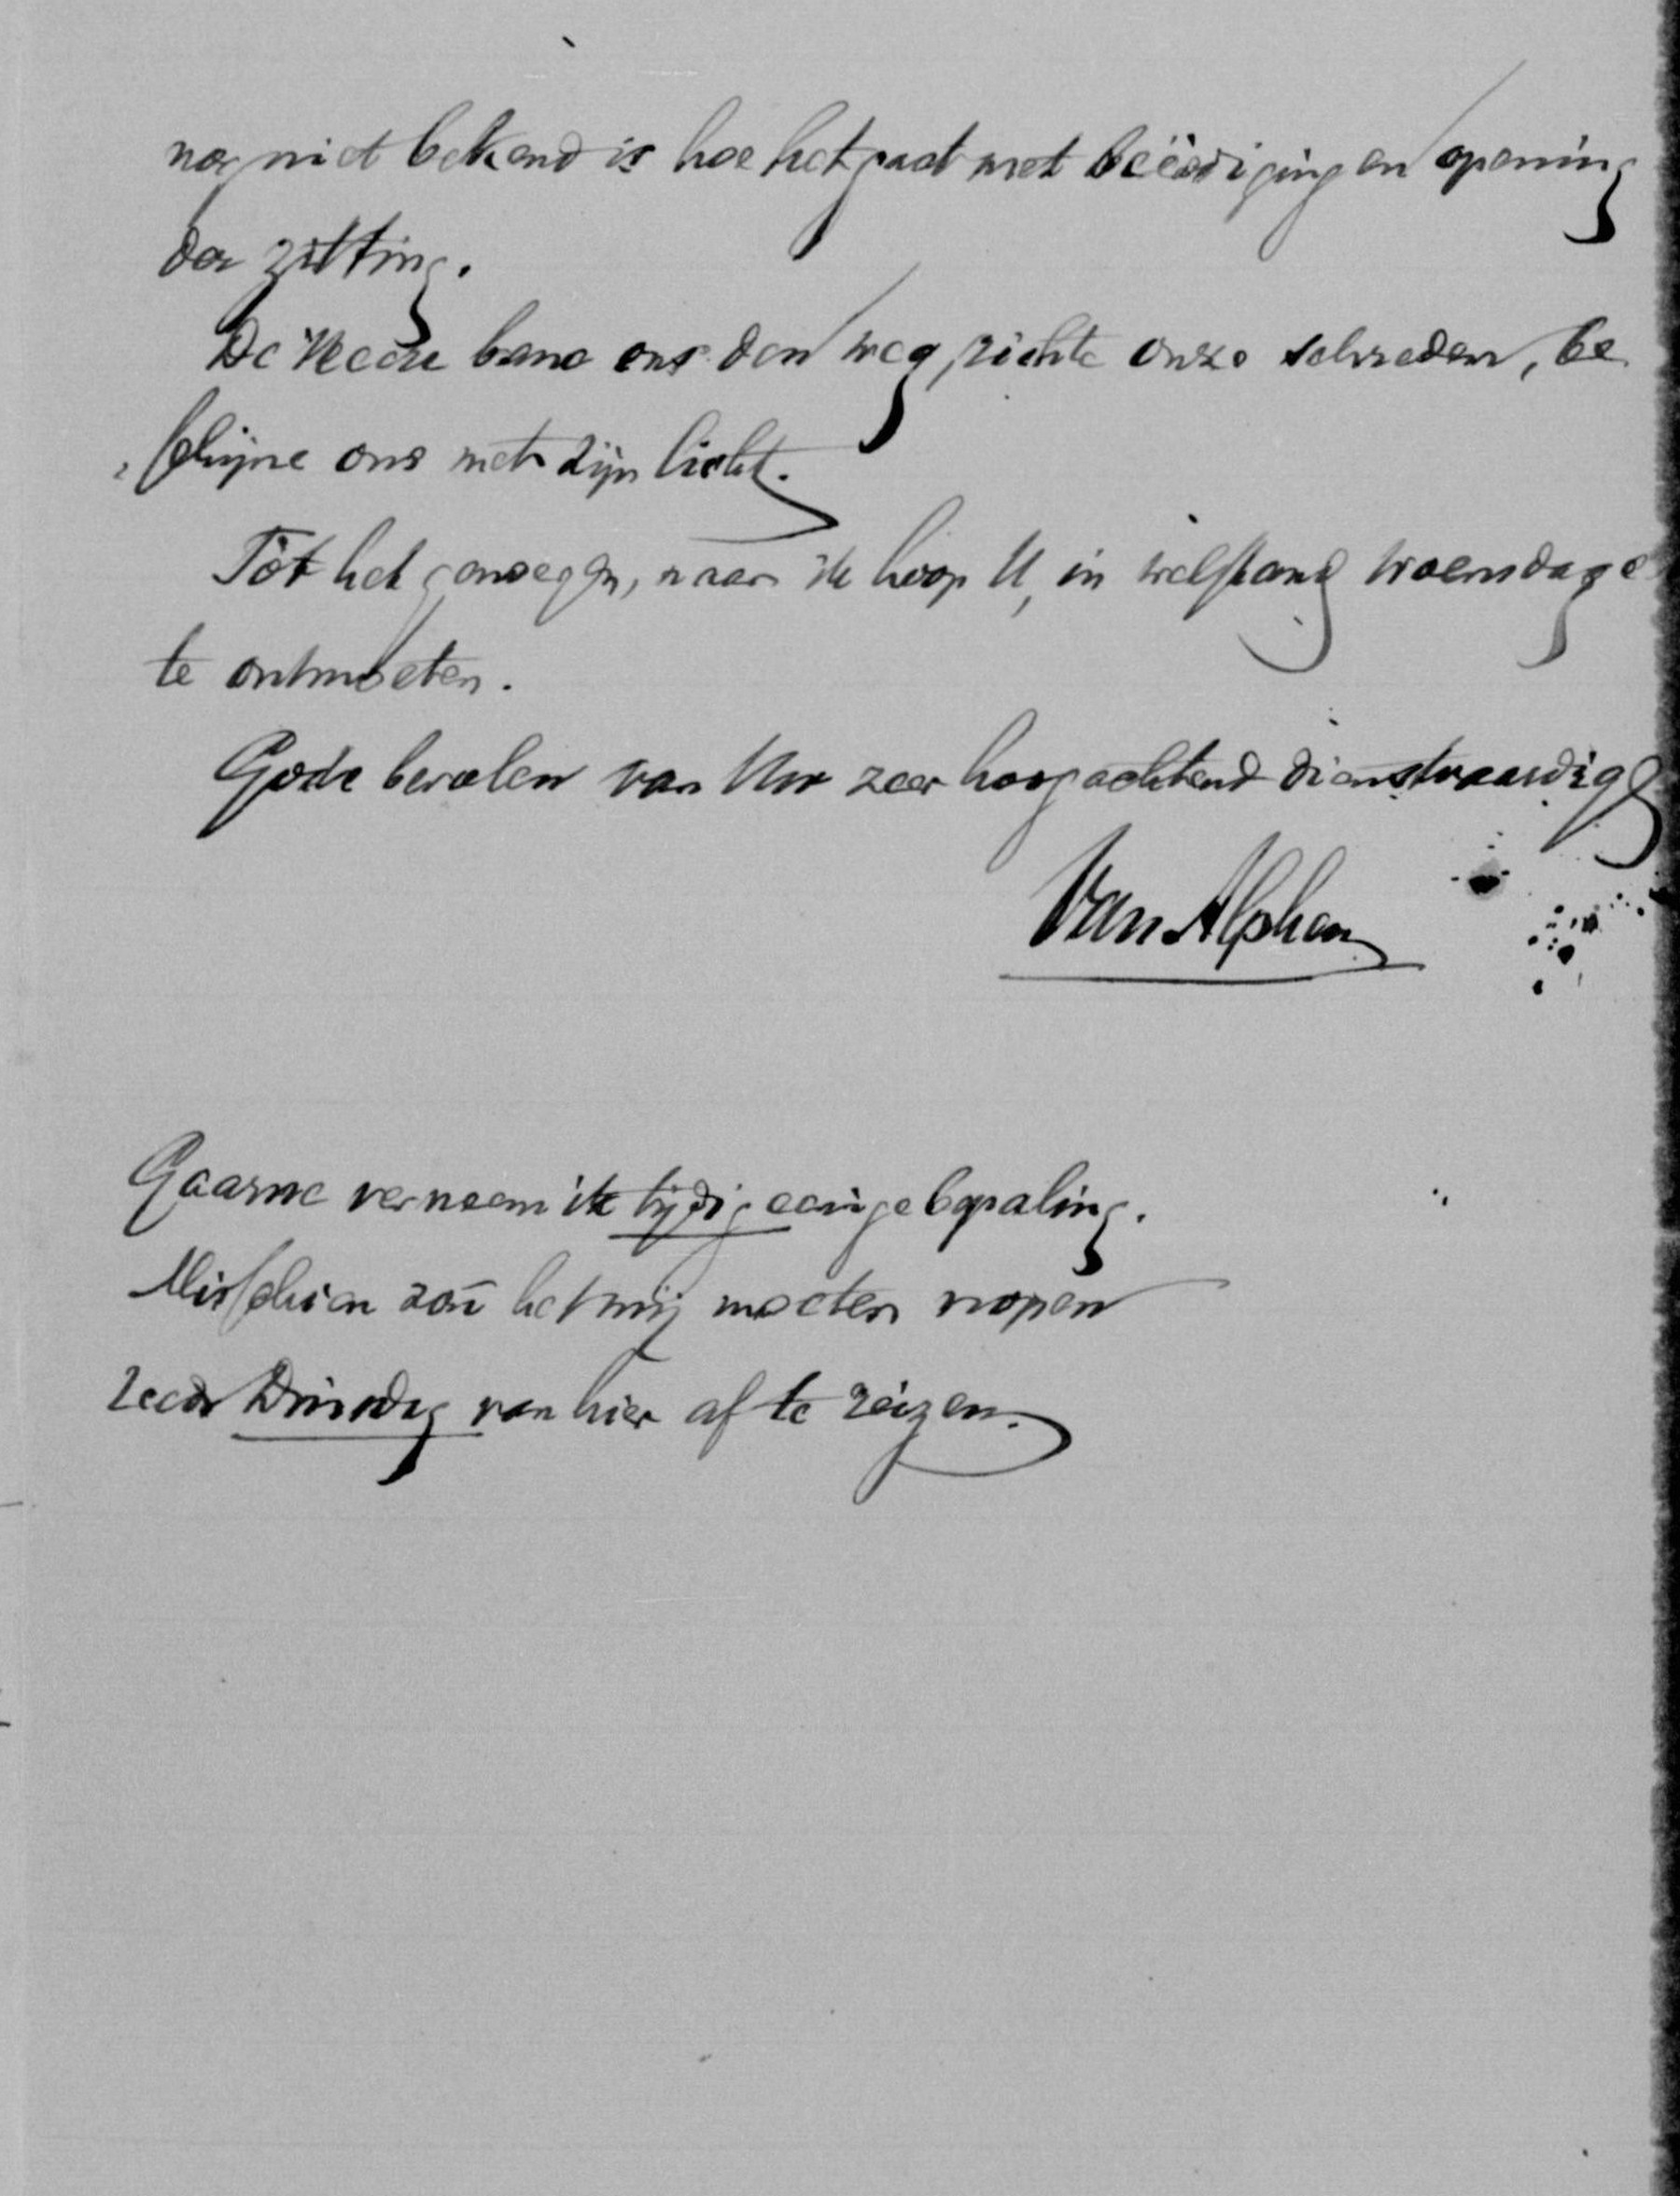 nog niet bekend is hoe het gaat met beëediging en opening
der zitting.
De Heere bane ons den weg, richte onze schreden, be
schijne ons met zijn licht.
Tot het genoegen, naar ik hoop U, in welstand woensdag
te ontmoeten.
Gode bevolen van Uw zeer hoogachtend dienstvaardige
Van Alphen
Gaarne verneem ik tijdig eenige bepaling.
Misschien zou het mij moeten nopen
reeds Dinsdag van hier af te reizen.